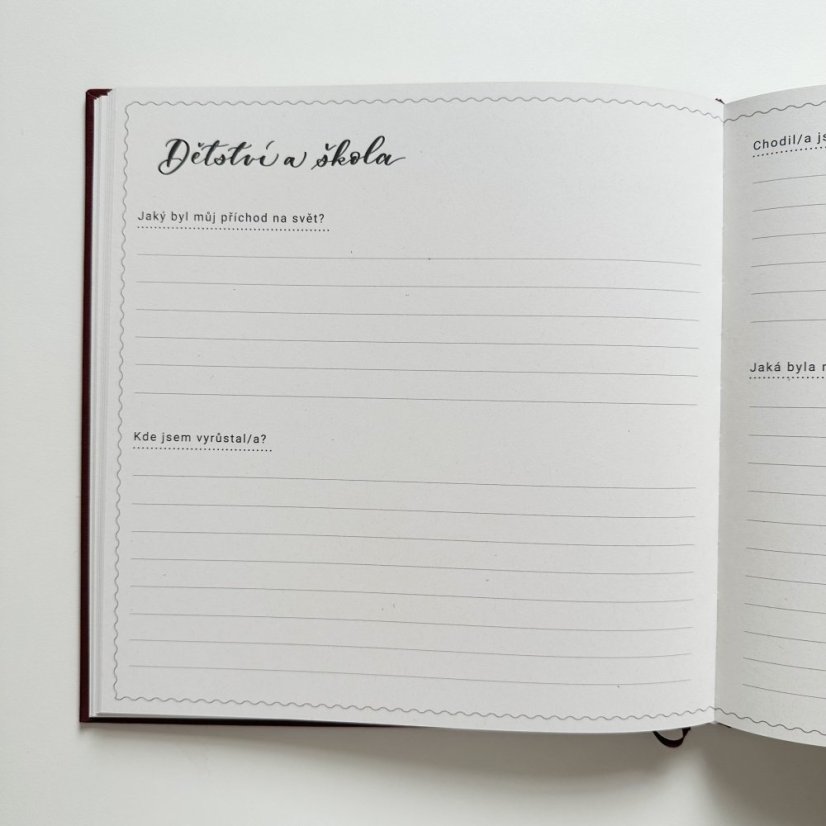 Dětství a škola
Jaký byl můj příchod na svět?
Kde jsem vyrůstal/a?
Chodil/a
Jaká byla